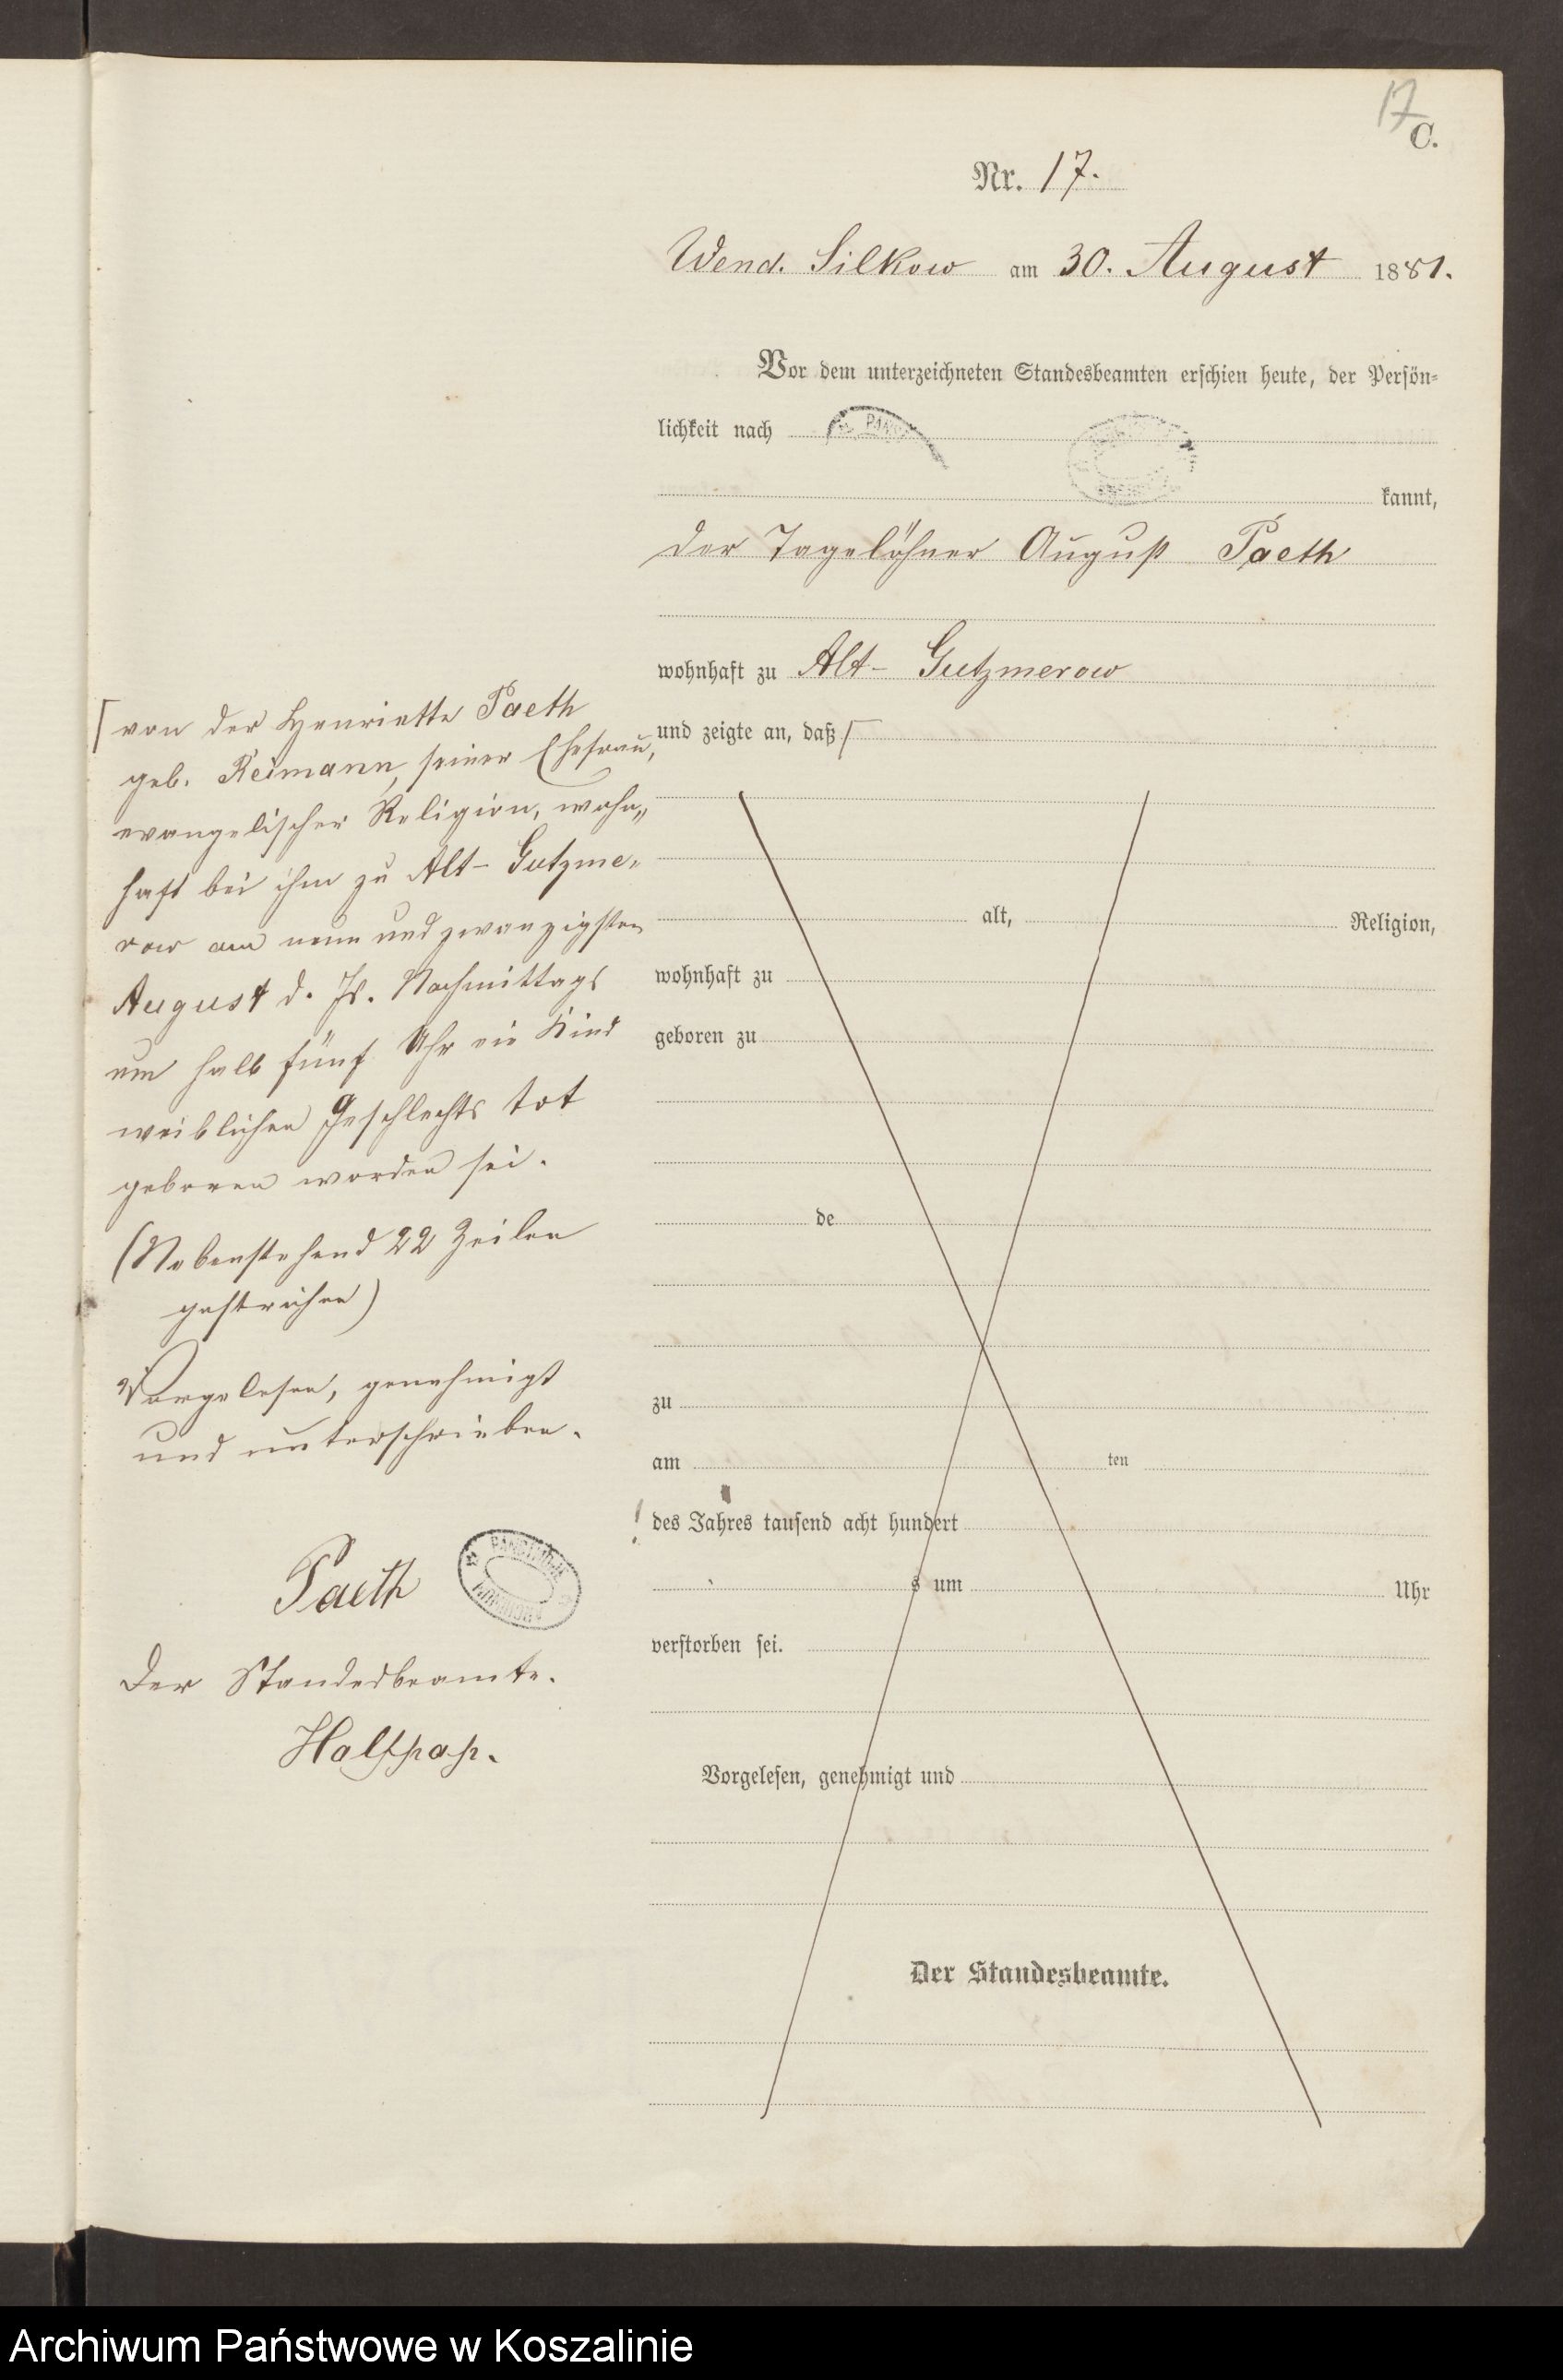 17
C.
Nr. 17.
Wend. Silkow am 30. August 1881.
Vor dem unterzeichneten Standesbeamten erschien heute, der Persön-
lichkeit nach
kannt,
der Tagelöhner August Paeth
wohnhaft zu Alt- Gutzmerow
und zeigte an, daß
von der Henriette Paeth
geb. Reimann, seiner Ehefrau,
evangelischer Religion, wohn-
haft bei ihm zu Alt- Gutzme-
row am neun und zwanzigsten
August d. Js. Nachmittags
um halb fünf Uhr ein Kind
weiblichen Geschlechts tot
geboren worden sei.
(Nebenstehend 22 Zeilen
gestrichen)
Vorgelesen, genehmigt
und unterschrieben.
Paeth
Der Standesbeamte.
Halfpap.
alt, Religion,
wohnhaft zu
geboren zu
de
zu
am ten
des Jahres tausend acht hundert
s um Uhr
verstorben sei.
Vorgelesen, genehmigt und
Der Standesbeamte.
Archiwum Państwowe w Koszalinie